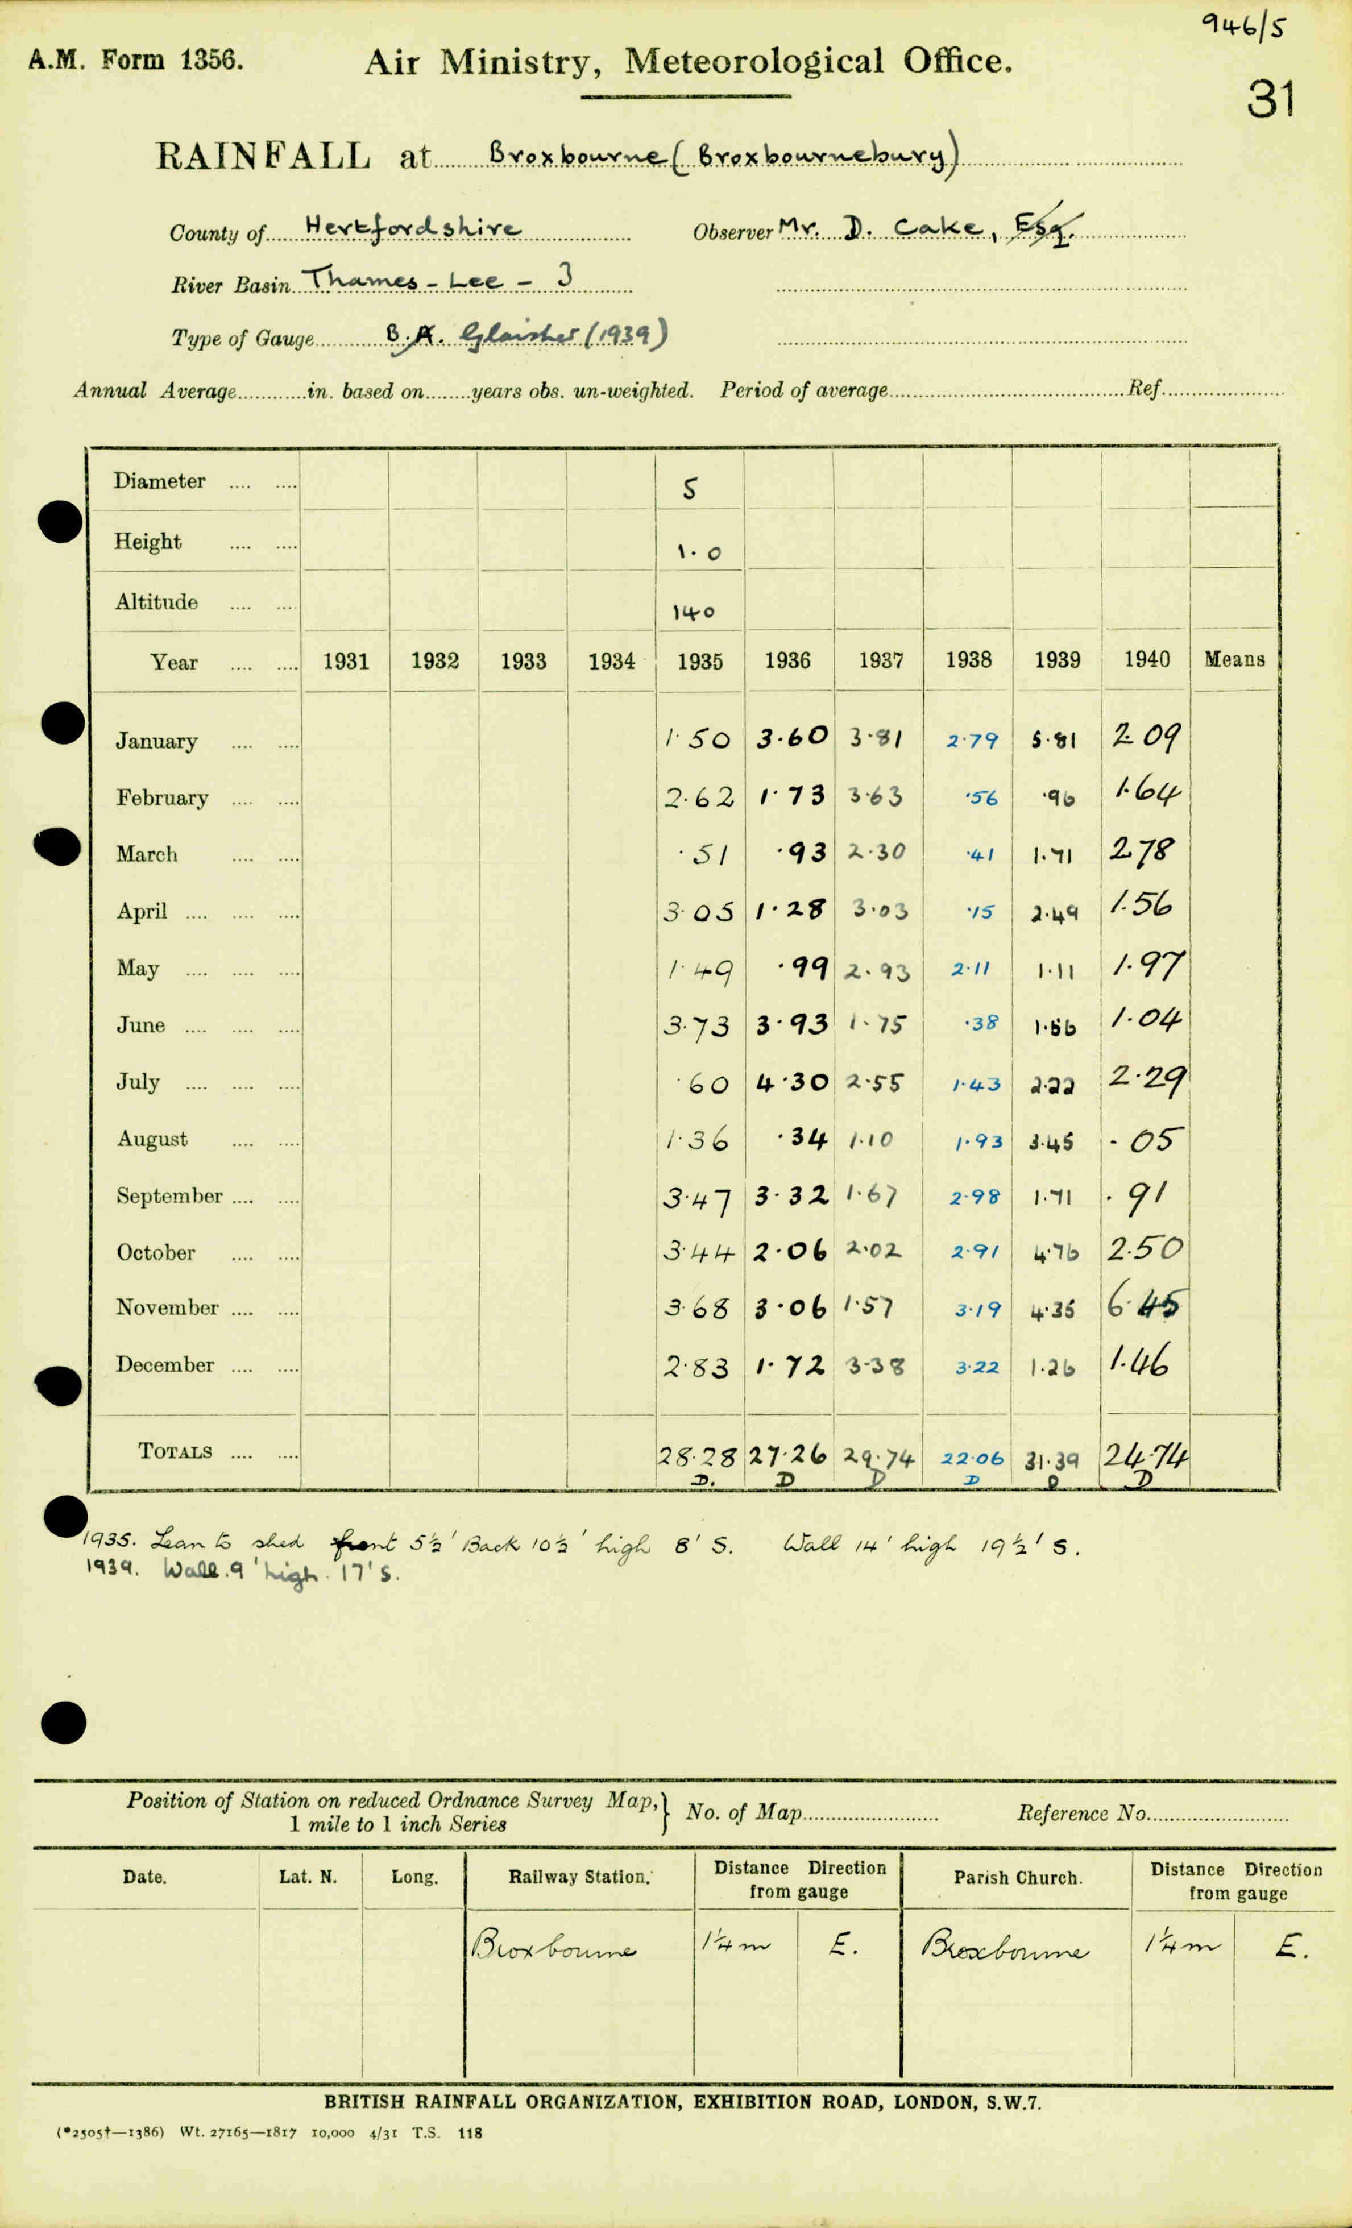 946/5
A.M. Form 1356. Air Ministry, Meteorological Office.
31
RAINFALL at Broxbourne (Broxbournebury)
County of Hertfordshire Observer Mr. D. Cake, Esq.
River Basin Thames - Lee - 3
Type of Gauge B.A. Glaisher (1939)
Annual Average in. based on years obs. un-weighted. Period of average Ref.
Diameter 5
Height 1.0
Altitude 140
Year 1931 1932 1933 1934 1935 1936 1937 1938 1939 1940 Means
January 1.50 3.60 3.81 2.79 5.81 2.09
February 2.62 1.73 3.63 .56 .96 1.64
March .51 .93 2.30 .41 1.71 2.78
April 3.05 1.28 3.03 .15 2.49 1.56
May 1.49 .99 2.93 2.11 1.11 1.97
June 3.73 3.93 1.75 .38 1.56 1.04
July .60 4.30 2.55 1.43 2.22 2.29
August 1.36 .34 1.10 1.93 3.45 .05
September 3.47 3.32 1.67 2.98 1.71 .91
October 3.44 2.06 2.02 2.91 4.76 2.50
November 3.68 3.06 1.57 3.19 4.35 6.45
December 2.83 1.72 3.38 3.22 1.26 1.46
TOTALS 28.28 27.26 29.74 22.06 31.39 24.74
D. D D D D D
1935. Lean to shed front 5½' Back 10½' high 8' S. Wall 14' high 19½' S.
1939. Wall 9' high. 17' S.
Position of Station on reduced Ordnance Survey Map, 1 mile to 1 inch Series } No. of Map Reference No.
Date. Lat. N. Long. Railway Station. Distance Direction from gauge Parish Church. Distance Direction from gauge
Broxbourne 1¼ m E. Broxbourne 1¼ m E.
BRITISH RAINFALL ORGANIZATION, EXHIBITION ROAD, LONDON, S.W.7.
(*2505†—1386) Wt. 27165—1817 10,000 4/31 T.S. 118